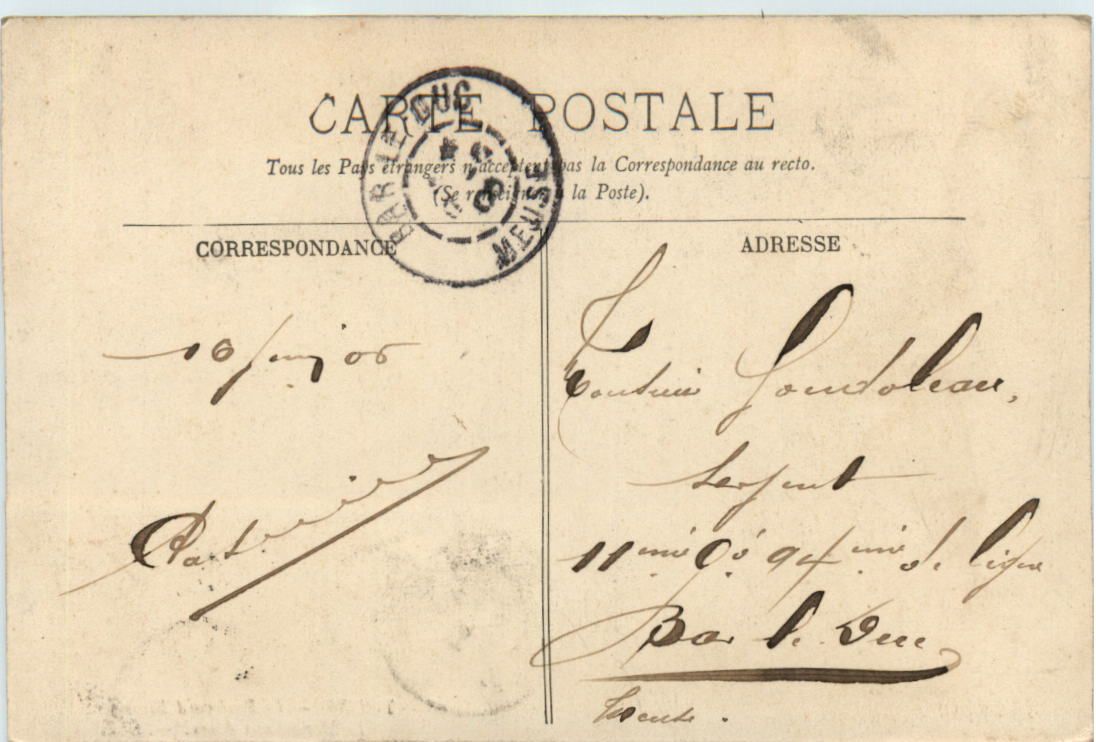 CARTE POSTALE
Tous les Pays étrangers n'acceptent pas la Correspondance au recto.
(Se renseigner à la Poste).
BAR-LE-DUC
MEUSE
CORRESPONDANCE
ADRESSE
10 juin 06
Gondoleau,
Sergent
11eme Cie 94eme de ligne
Bar le Duc
Meuse.